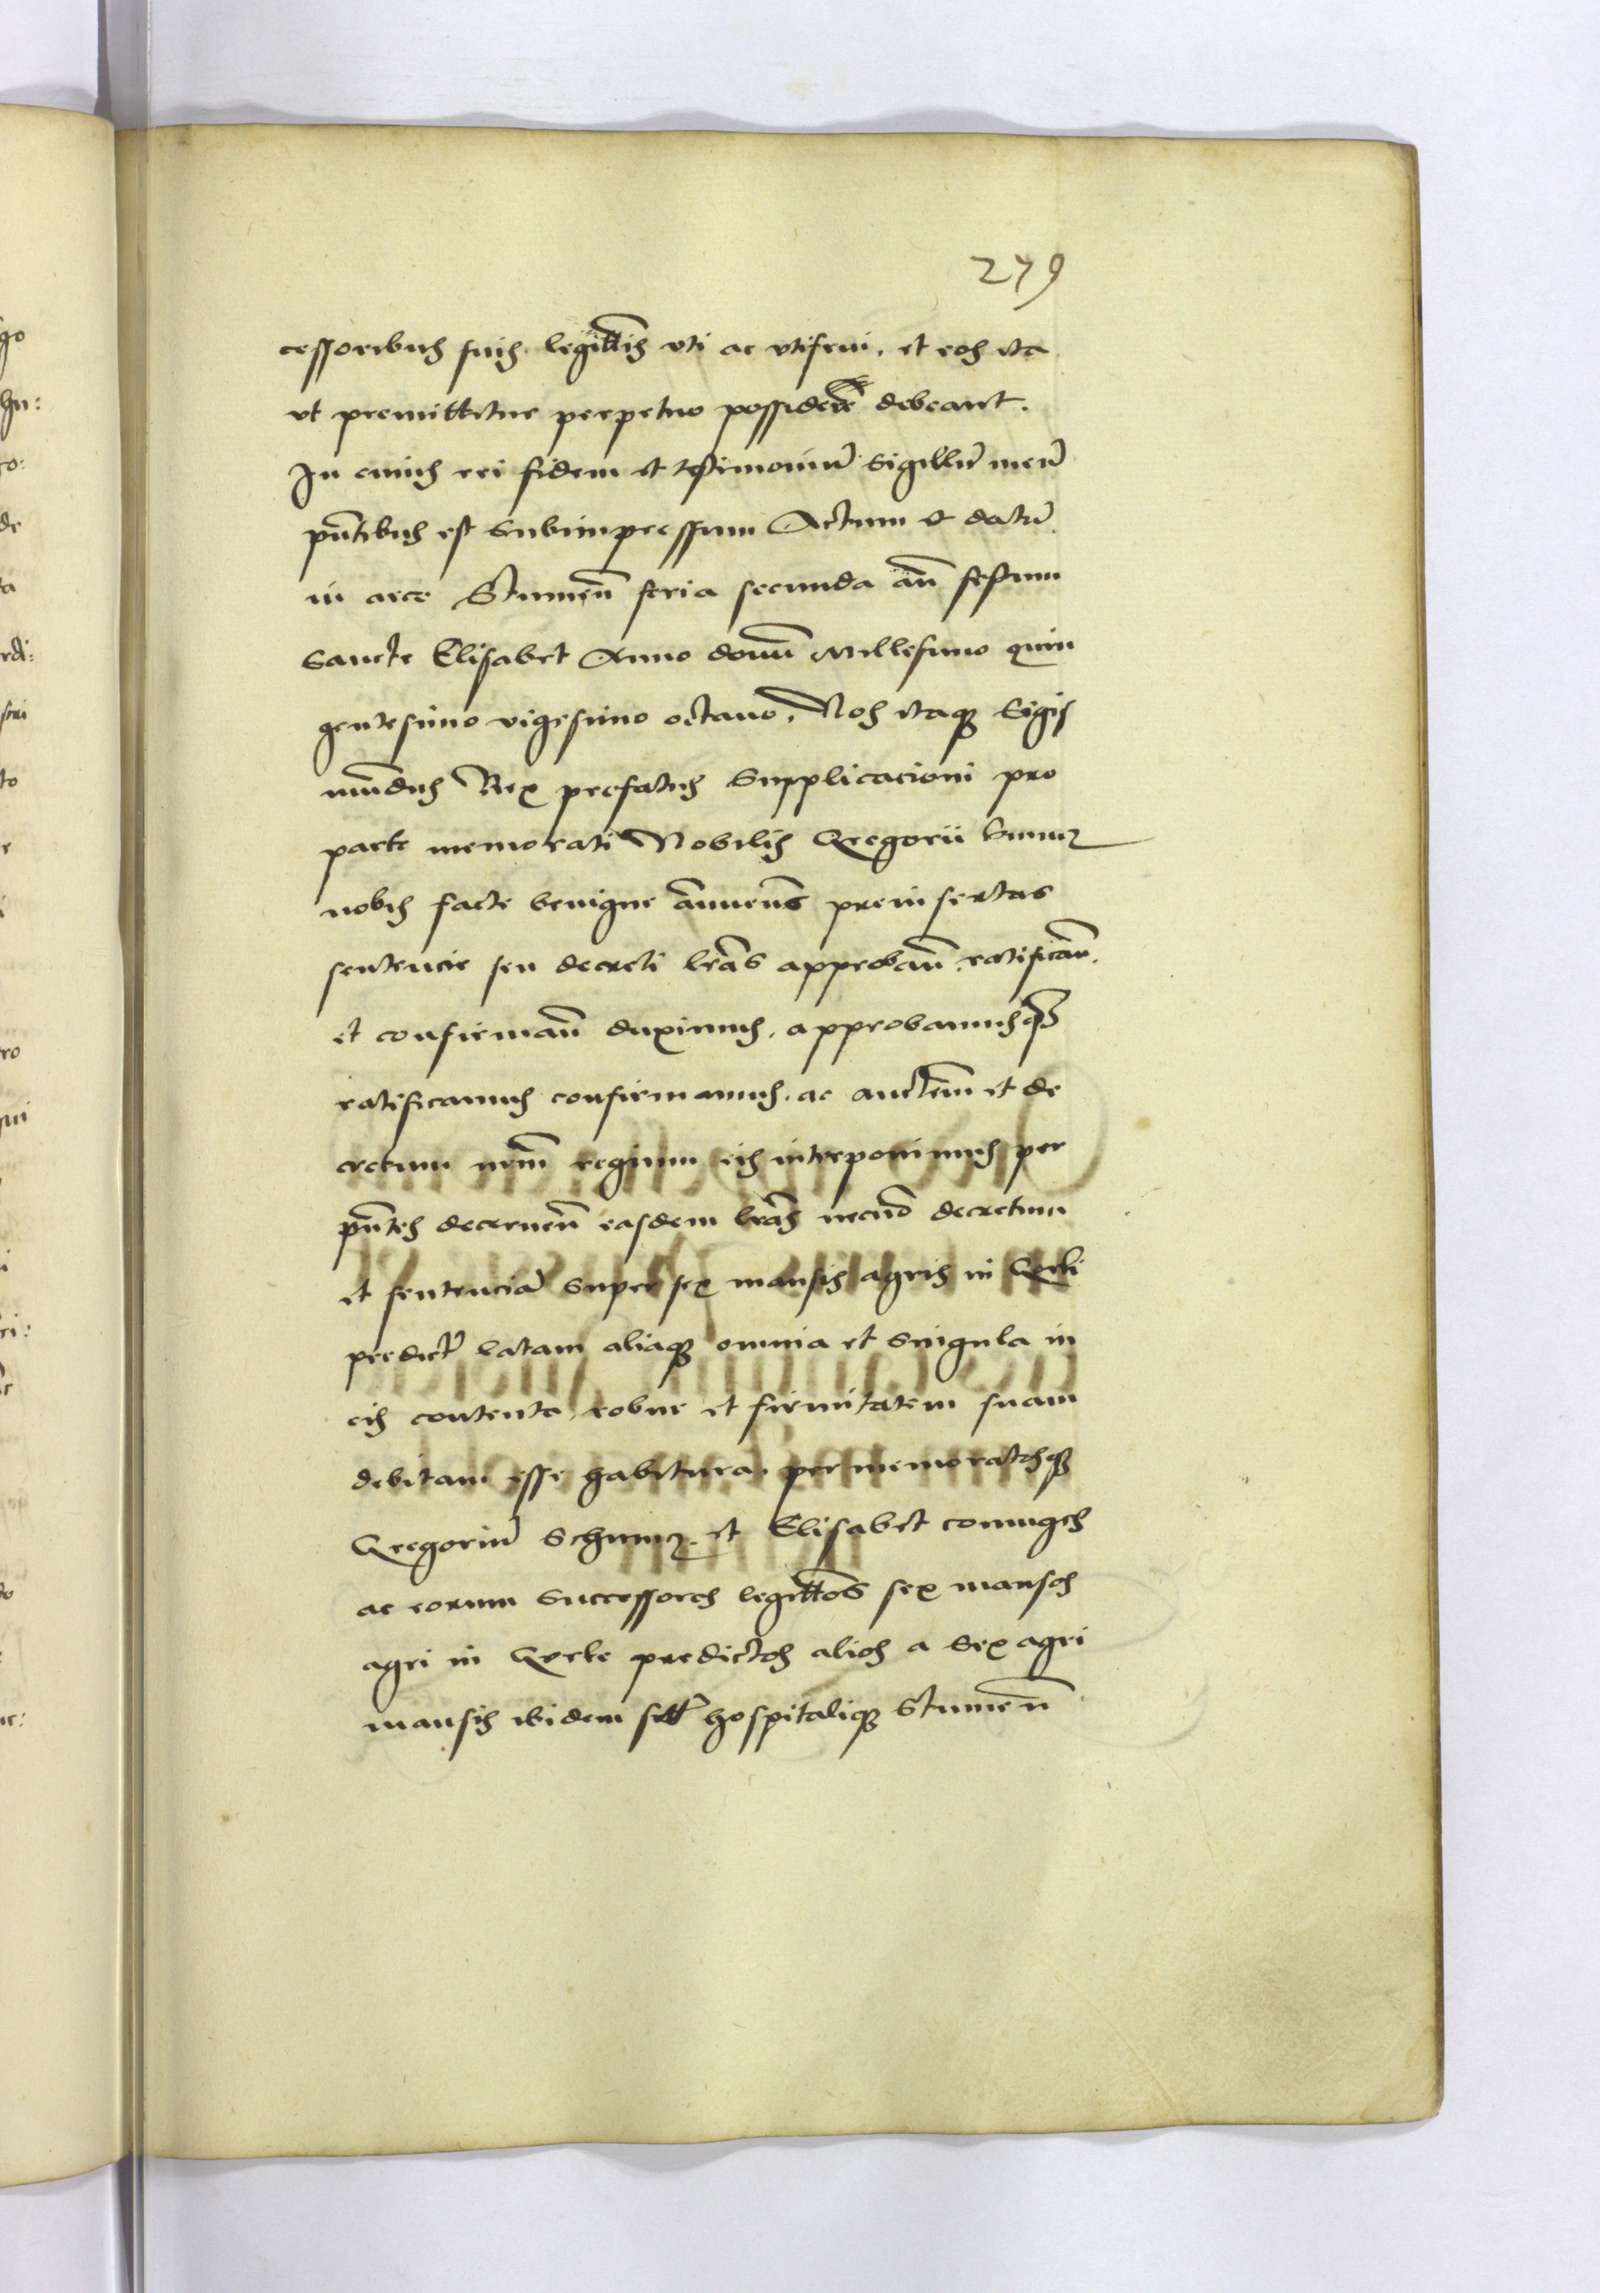 279
cessoribus suis legittis uti ac utifrui, et eos ita
ut premittitur perpetuo possidere debeant.
In cuius rei fidem et testimoniu Sigillu meu
pntibus est Subimpressum Actum et datu
in arce Stumen feria secunda an festum
Sancte Elisabet Anno domi Millesimo quin
gentesimo vigesimo octavo, Nos itaq Sigis
mudus Rex prefatus Supplicacioni pro
parte memorati Nobilis Gregorii
nobis facte benigne annuens preinsertas
sentencie seu decreti lras approban, ratifican,
et confirman duximus, approbamusq
ratificamus confirmamus, ac auctem et de
cretum nrm regium eis interponimus per
pntes decernen easdem lras necno decretum
et sentencia Super sex mansis agris in
predict latam aliaq omnia et Singula in
eis contenta, robur et firmitatem suam
debitam esse habitura, per memoratosq
Gregoriu Schimcz, et Elisabet coniuges
ac eorum Successores legittos sex mansos
agri in predictos alios a Sex agri
mansis ibidem hospitaliq Stumen